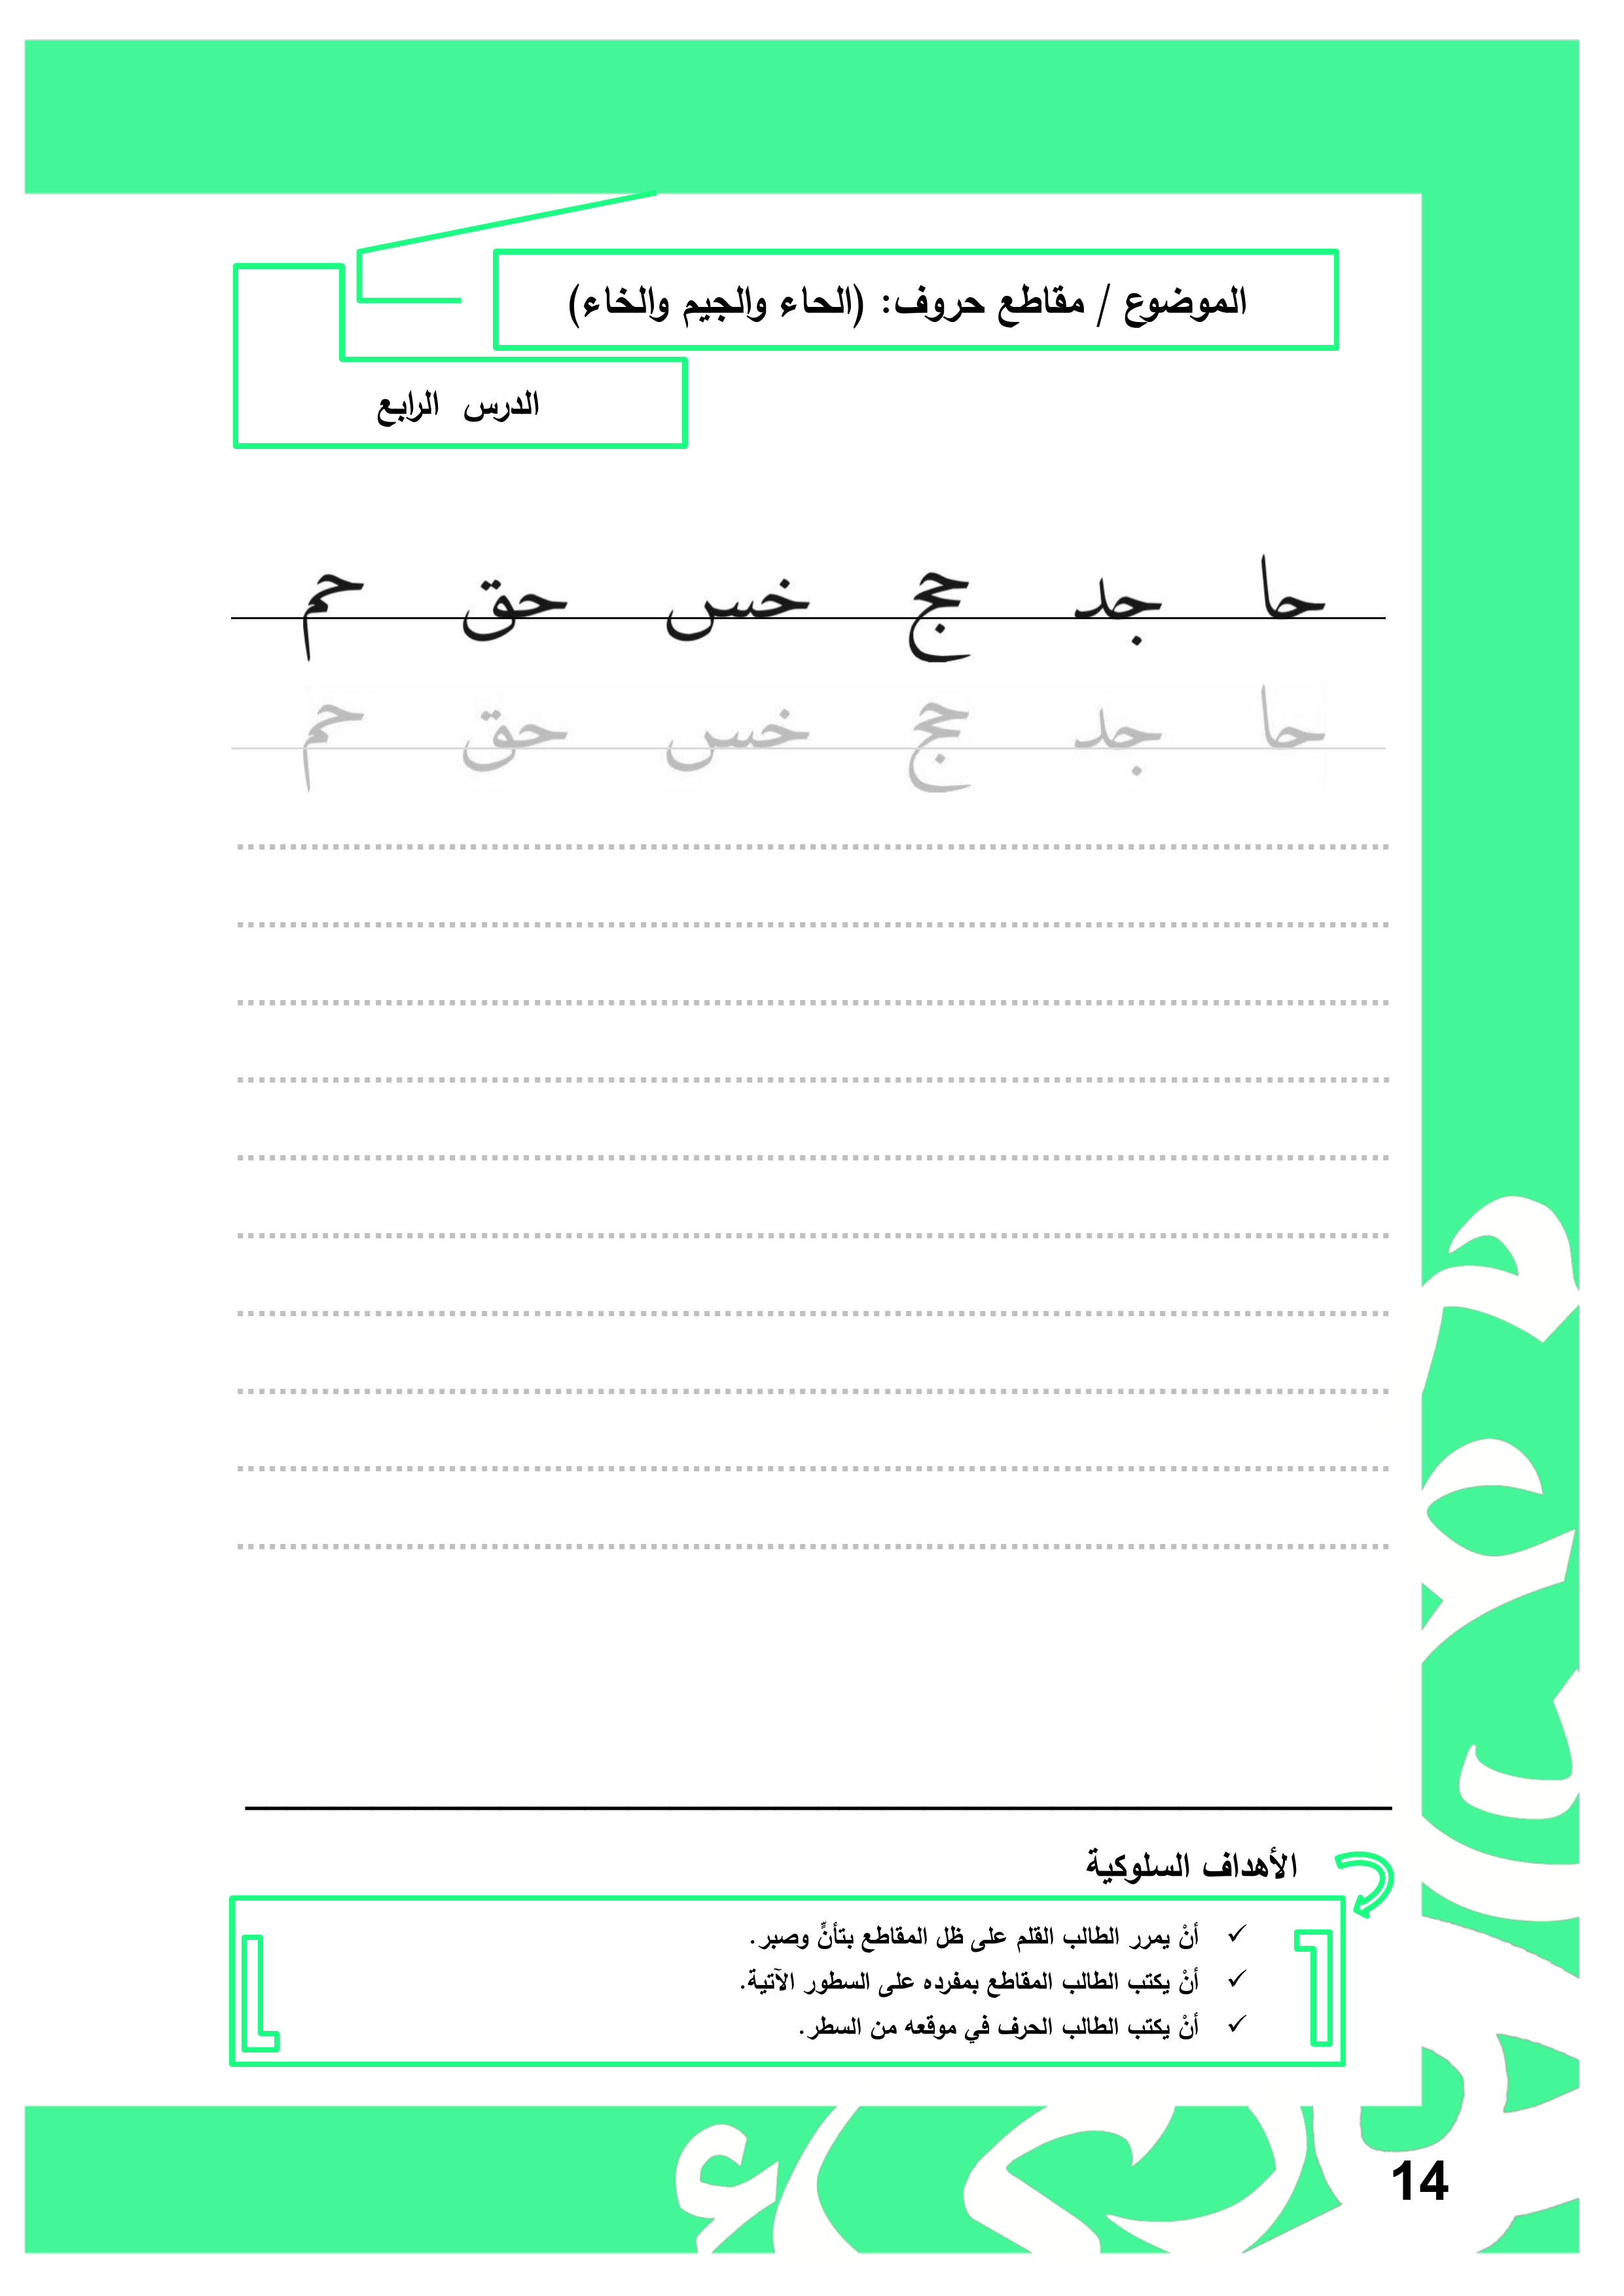 الموضوع / مقاطع حروف: (الحاء والجيم والخاء)
الدرس الرابع
حا جد جج خس حق حم
حا جد جج خس حق حم
الأهداف السلوكية
✓ أنْ يمرر الطالب القلم على ظل المقاطع بتأنٍّ وصبر.
✓ أنْ يكتب الطالب المقاطع بمفرده على السطور الآتية.
✓ أنْ يكتب الطالب الحرف في موقعه من السطر.
14